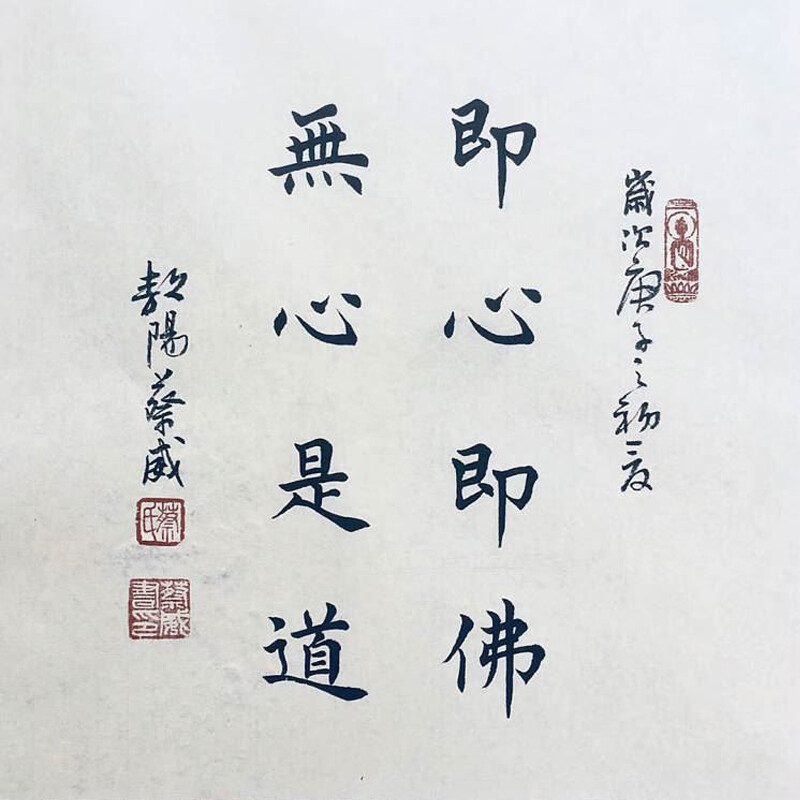 歲次庚子之初夏
即心即佛
無心是道
陽蔡威
蔡氏
蔡威
書印